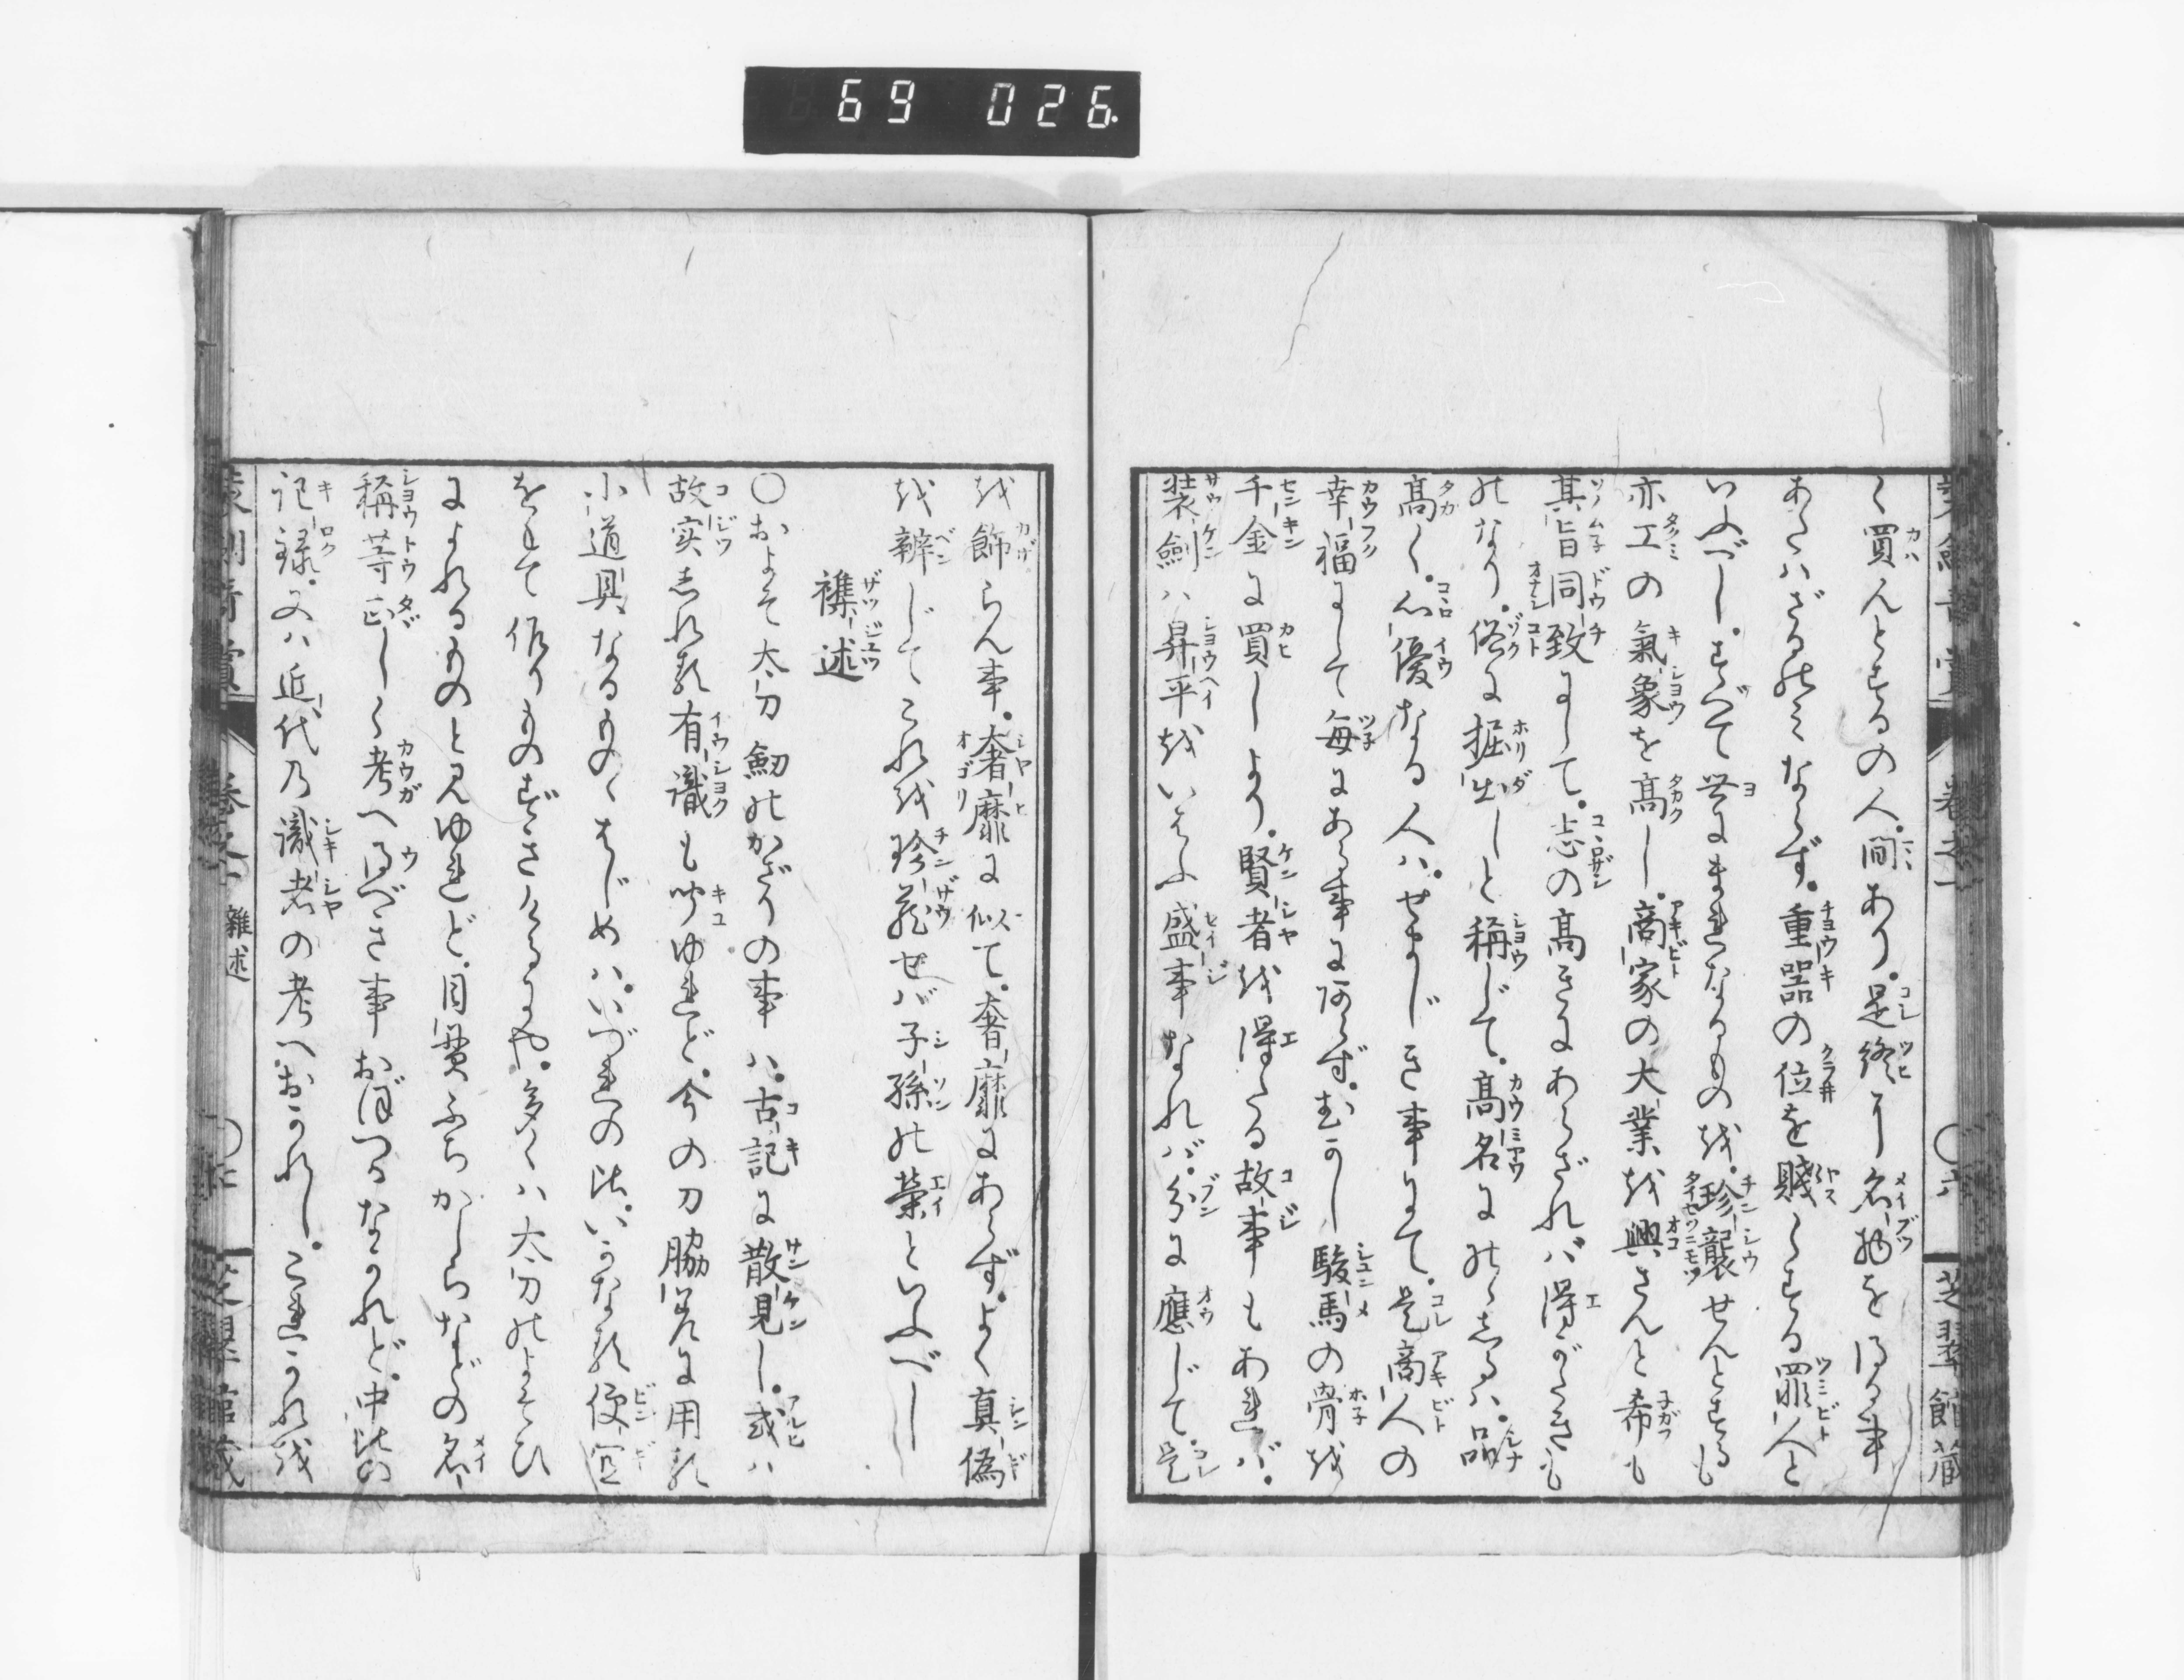 69 026.
く買んとするの人。間あり。是終に名物を得る事
あたハざるのミならず。重器の位を賤くする罪人と
いふべし。すべて世にまれなるもの越。珍襲せんとするも
亦工の氣象を高し。商家の大業越興さんと希も
其旨同致にして。志の高きにあらざれバ得がたきも
のなり。俗に掘出しと称じて。高名にのゝしるハ。品
高く。心優なる人ハ。せまじき事にて。是商人の
幸福にして毎にある事に阿らず。むかし駿馬の骨越
千金に買しより。賢者越得たる故事もあれバ。
装劍ハ昇平越いはふ盛事なれバ。分に應じて是
越飾らん事。奢靡に似て。奢靡にあらず。よく真偽
越辨じてこれ越珍蔵せバ子孫の榮といふべし
襍述
〇およそ太刀劔のかざりの事ハ。古記に散見し。或ハ
故実志れる有識も聞ゆれど。今の刀脇差に用る
小道具なるもの、はじめハ。いづれの比。いかなる便宜
をもて作りものずきけるにや。多くハ太刀のよそひ
によれるものと見ゆれど。目貫ふちかしらなどの名
稱等正しく考へ得べき事おぼつかなかれど。中比の
記録。又ハ近代乃識者の考へおかれし。これかれ越
卷之一 雜述
芝翠館藏